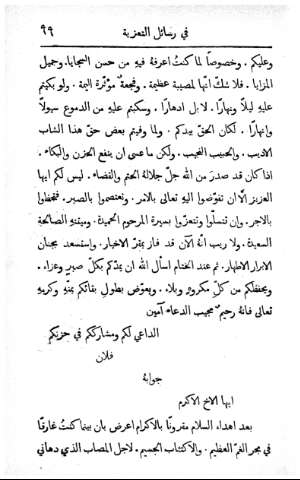 في رسائل التعزية ٩٩
وعليكم . وخصوصاً لما كنتُ اعرفهُ فيهِ من حسن السجايا . وجميل
المزايا . فلا شكَّ انَّها لمصيبة عظيمة . وفجيعةٌ مؤثّرة اليمة . ولو بكيتم
عليهِ ليلاً ونهارًا . لا بل ادهارًا . وسكبتم عليهِ من الدموع سيولاً
وانهارًا . لكان الحقّ بيدكم . ولما وفيتم بعض حقّ هذا الشاب
الاديب . والحبيب النجيب . ولكن ما عسى ان ينفع الحزن والبكاء .
اذا كان قد صدر من الله جلّ جلالهُ الحتم والقضاء . ليس لكم ايها
العزيز الَّا ان تفوّضوا اليهِ تعالى بالامر . وتعتصموا بالصبر . فتحظوا
بالاجر . وإن تتسلّوا وتتعزّوا بسيرة المرحوم الحميدة . وميتتهِ الصالحة
السعيدة . ولا ريب أنهُ الآن قد فاز بمقرّ الاخيار . واستسعد بجنان
الابرار الاطهار . ثم عند الختام اسأل الله ان يمدّكم بكلّ صبر وعزاء .
ويحفظكم من كلّ مكروهٍ وبلاء . ويعوّض بطول بقائكم بمنّهِ وكرمهِ
تعالى فانهُ رحيمٌ مجيب الدعاء آمين
الداعي لكم ومشارككم في حزنكم
فلان
جوابهُ
ايها الاخ الاكرم
بعد اهداء السلام مقرونًا بالاكرام اعرض بأن بينما كنتُ غارقًا
في بحر الغمّ العظيم . والاكتئاب الجسيم . لاجل المصاب الذي دهاني